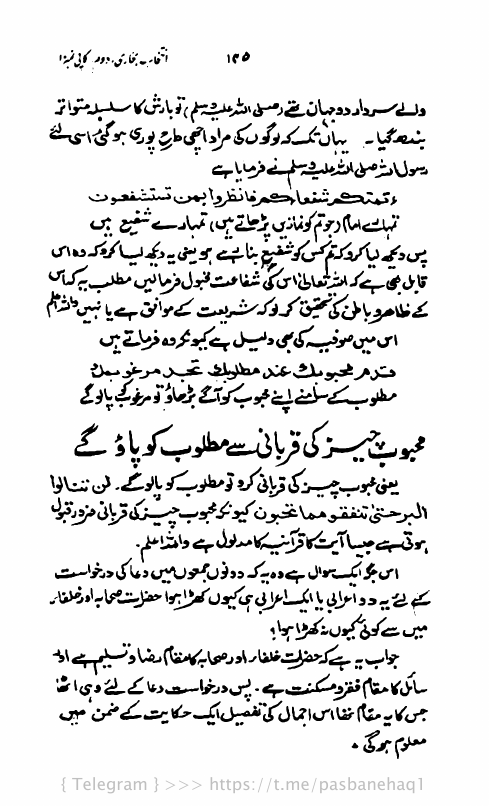 ۱۴۵ انتخاب بخاری، دوم، کاپی نمبر۱
والے سردار دو جہاں تھے (صلی اللہ علیہ وسلم) تو بارش کا سلسلہ متواتر
بندھ گیا۔ یہاں تک کہ لوگوں کی مراد اچھی طرح پوری ہوگئی، اسی لئے
رسول اللہ صلی اللہ علیہ وسلم نے فرمایا ہے
ءئمتکم شفعاءکم فانظروا بمن تستشفعون
تمہارے امام (جو تم کو نمازیں پڑھاتے ہیں) تمہارے شفیع ہیں
پس دیکھ لیا کرو کہ تم کس کو شفیع بنا رہے ہو یعنی یہ دیکھ لیا کرو کہ وہ اس
قابل بھی ہے کہ اللہ تعالیٰ اس کی شفاعت قبول فرمالیں مطلب یہ کہ اس
کے ظاہر و باطن کی تحقیق کر لو کہ شریعت کے موافق ہے یا نہیں واللہ اعلم
اس میں صوفیہ کی بھی دلیل ہے کیونکہ وہ فرماتے ہیں
قدم محبوبک عند مطلوبک تجد مرغوبک
مطلوب کے سامنے اپنے محبوب کو آگے بڑھاؤ تو مرغوب کو پالوگے
محبوب چیز کی قربانی سے مطلوب کو پاؤ گے
یعنی محبوب چیز کی قربانی کرو تو مطلوب کو پالوگے۔ لن تنالوا
البر حتی تنفقو مما تحبون کیونکہ محبوب چیز کی قربانی ضرور قبول
ہوتی ہے جیسا آیت کا قرآنیہ کا مدلول ہے واللہ اعلم۔
اس جگہ ایک سوال ہے وہ یہ کہ دونوں جمعوں میں دعا کی درخواست
کے لئے یہ دو اعرابی یا ایک اعرابی ہی کیوں کھڑا ہوا حضرات صحابہ اور خلفاء
میں سے کوئی کیوں نہ کھڑا ہوا؟
جواب یہ ہے کہ حضرات خلفاء اور صحابہ کا مقام رضا و تسلیم ہے اور
سائل کا مقام فقر و مسکنت ہے۔ پس درخواست دعا کے لئے وہی اٹھا
جس کا یہ مقام تھا اس اجمال کی تفصیل ایک حکایت کے ضمن میں
معلوم ہوگی۔
{ Telegram } >>> https://t.me/pasbanehaq1